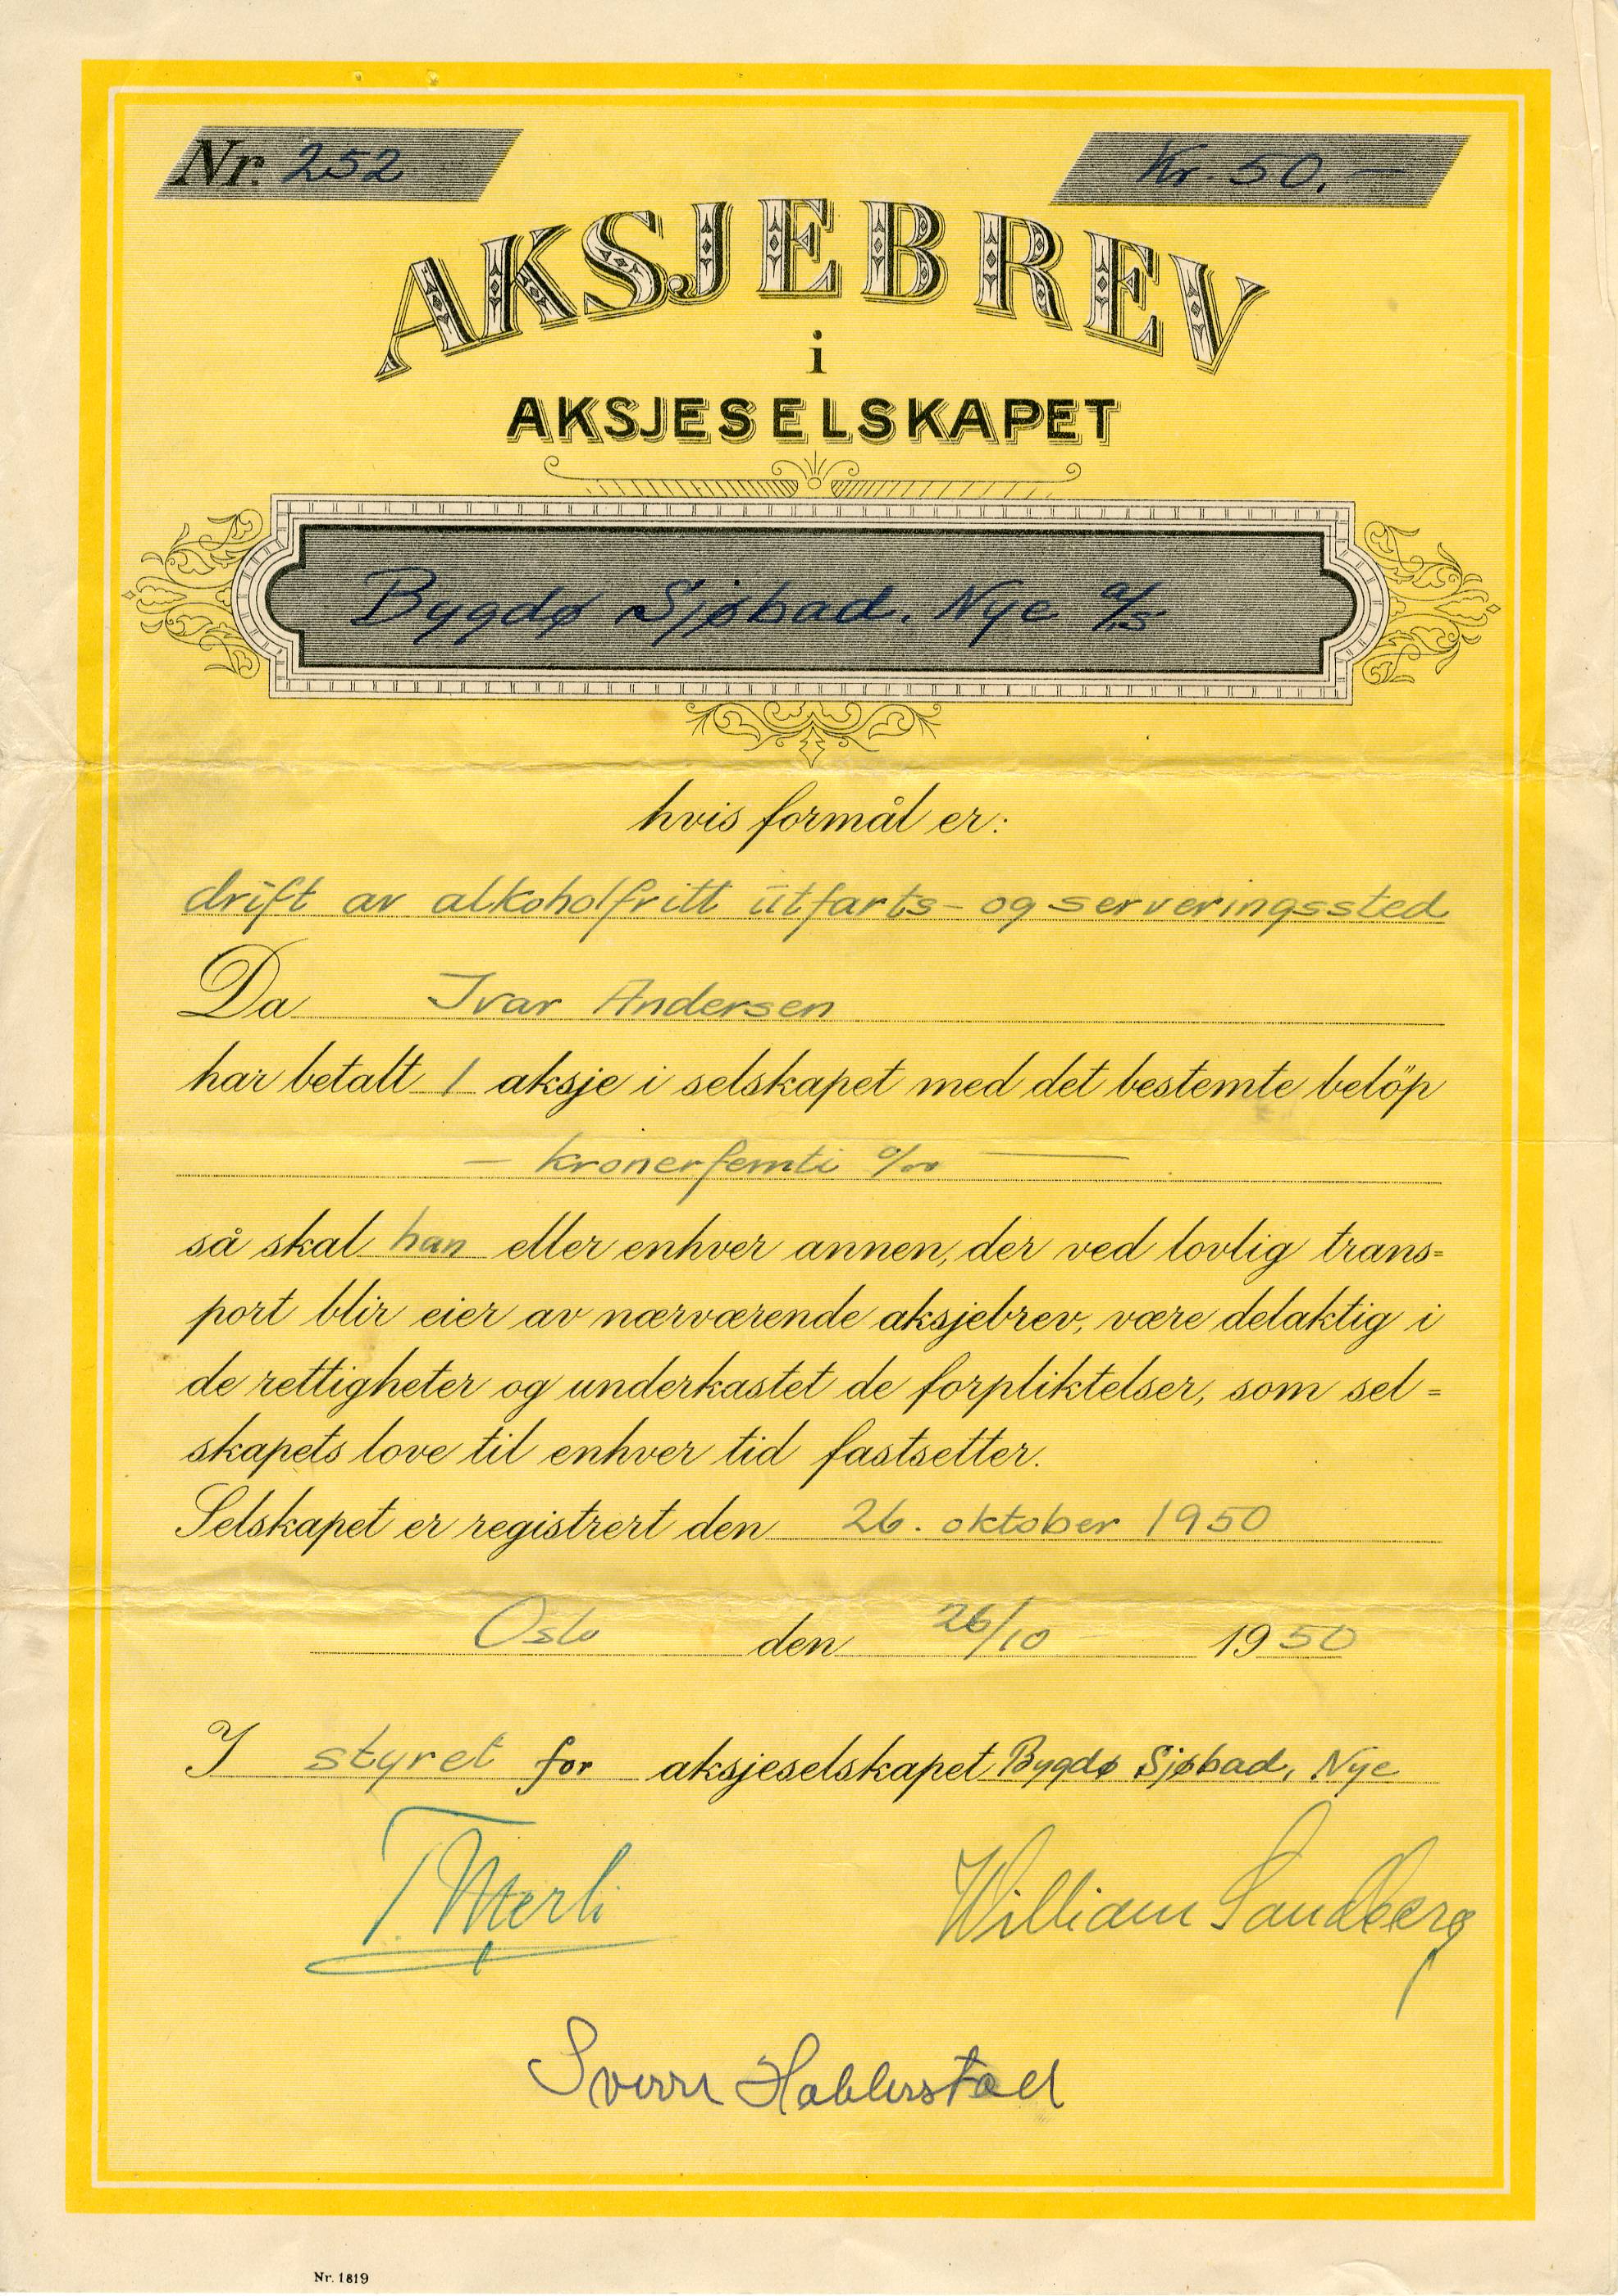 Nr. 252
Kr. 50.—
AKSJEBREV
i
AKSJESELSKAPET
Bygdø Sjøbad. Nye a/s
hvis formål er:
drift av alkoholfritt utfarts- og serveringssted
Da Ivar Andersen
har betalt 1 aksje i selskapet med det bestemte beløp
— kroner femti 0/00 —
så skal han eller enhver annen, der ved lovlig trans=
port blir eier av nærværende aksjebrev, være delaktig i
de rettigheter og underkastet de forpliktelser, som sel=
skapets love til enhver tid fastsetter.
Selskapet er registrert den 26. oktober 1950
Oslo den 26/10 1950
I styret for aksjeselskapet Bygdø Sjøbad, Nye
T. Merli
William Sandberg
Sverre
Nr. 1819